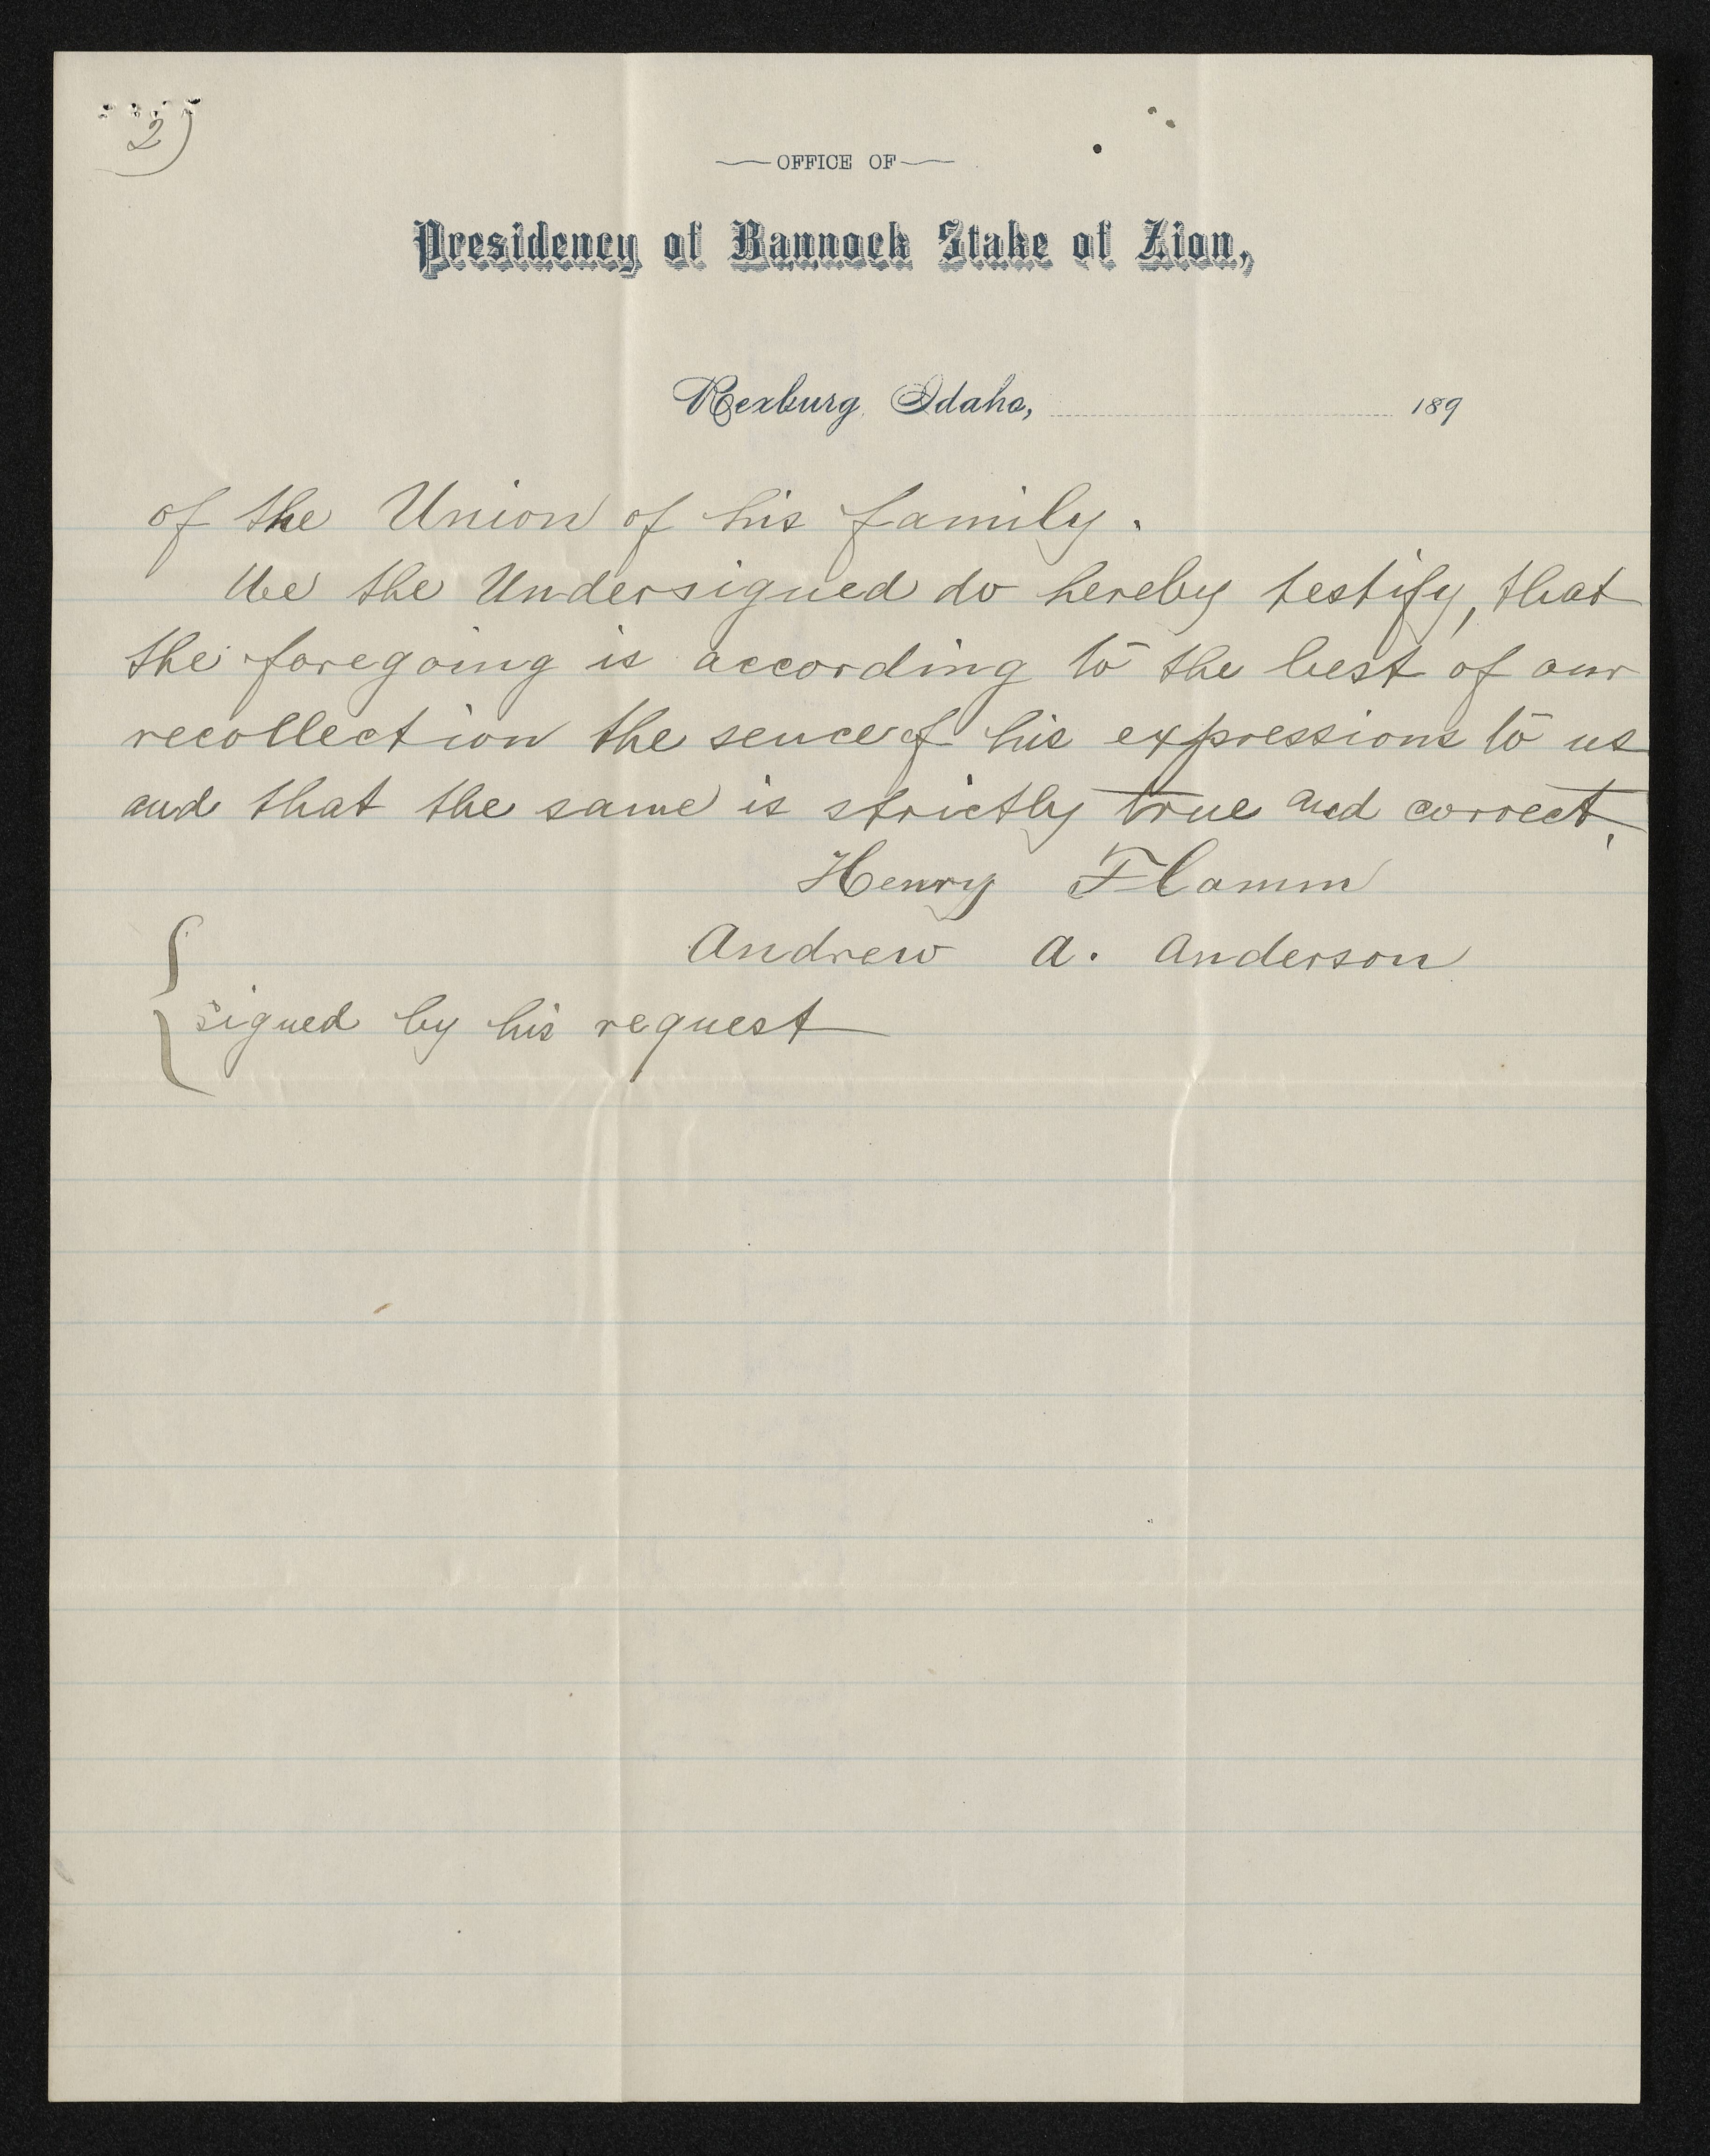 2)
OFFICE OF
Presidency of Bannock Stake of Zion,
Rexburg, Idaho, 189
of the Union of his family.
We the Undersigned do hereby testify, that
the foregoing is according to the best of our
recollection the sence of his expressions to us
and that the same is strictly true and correct.
Henry Flamm
Andrew A. Anderson
signed by his request